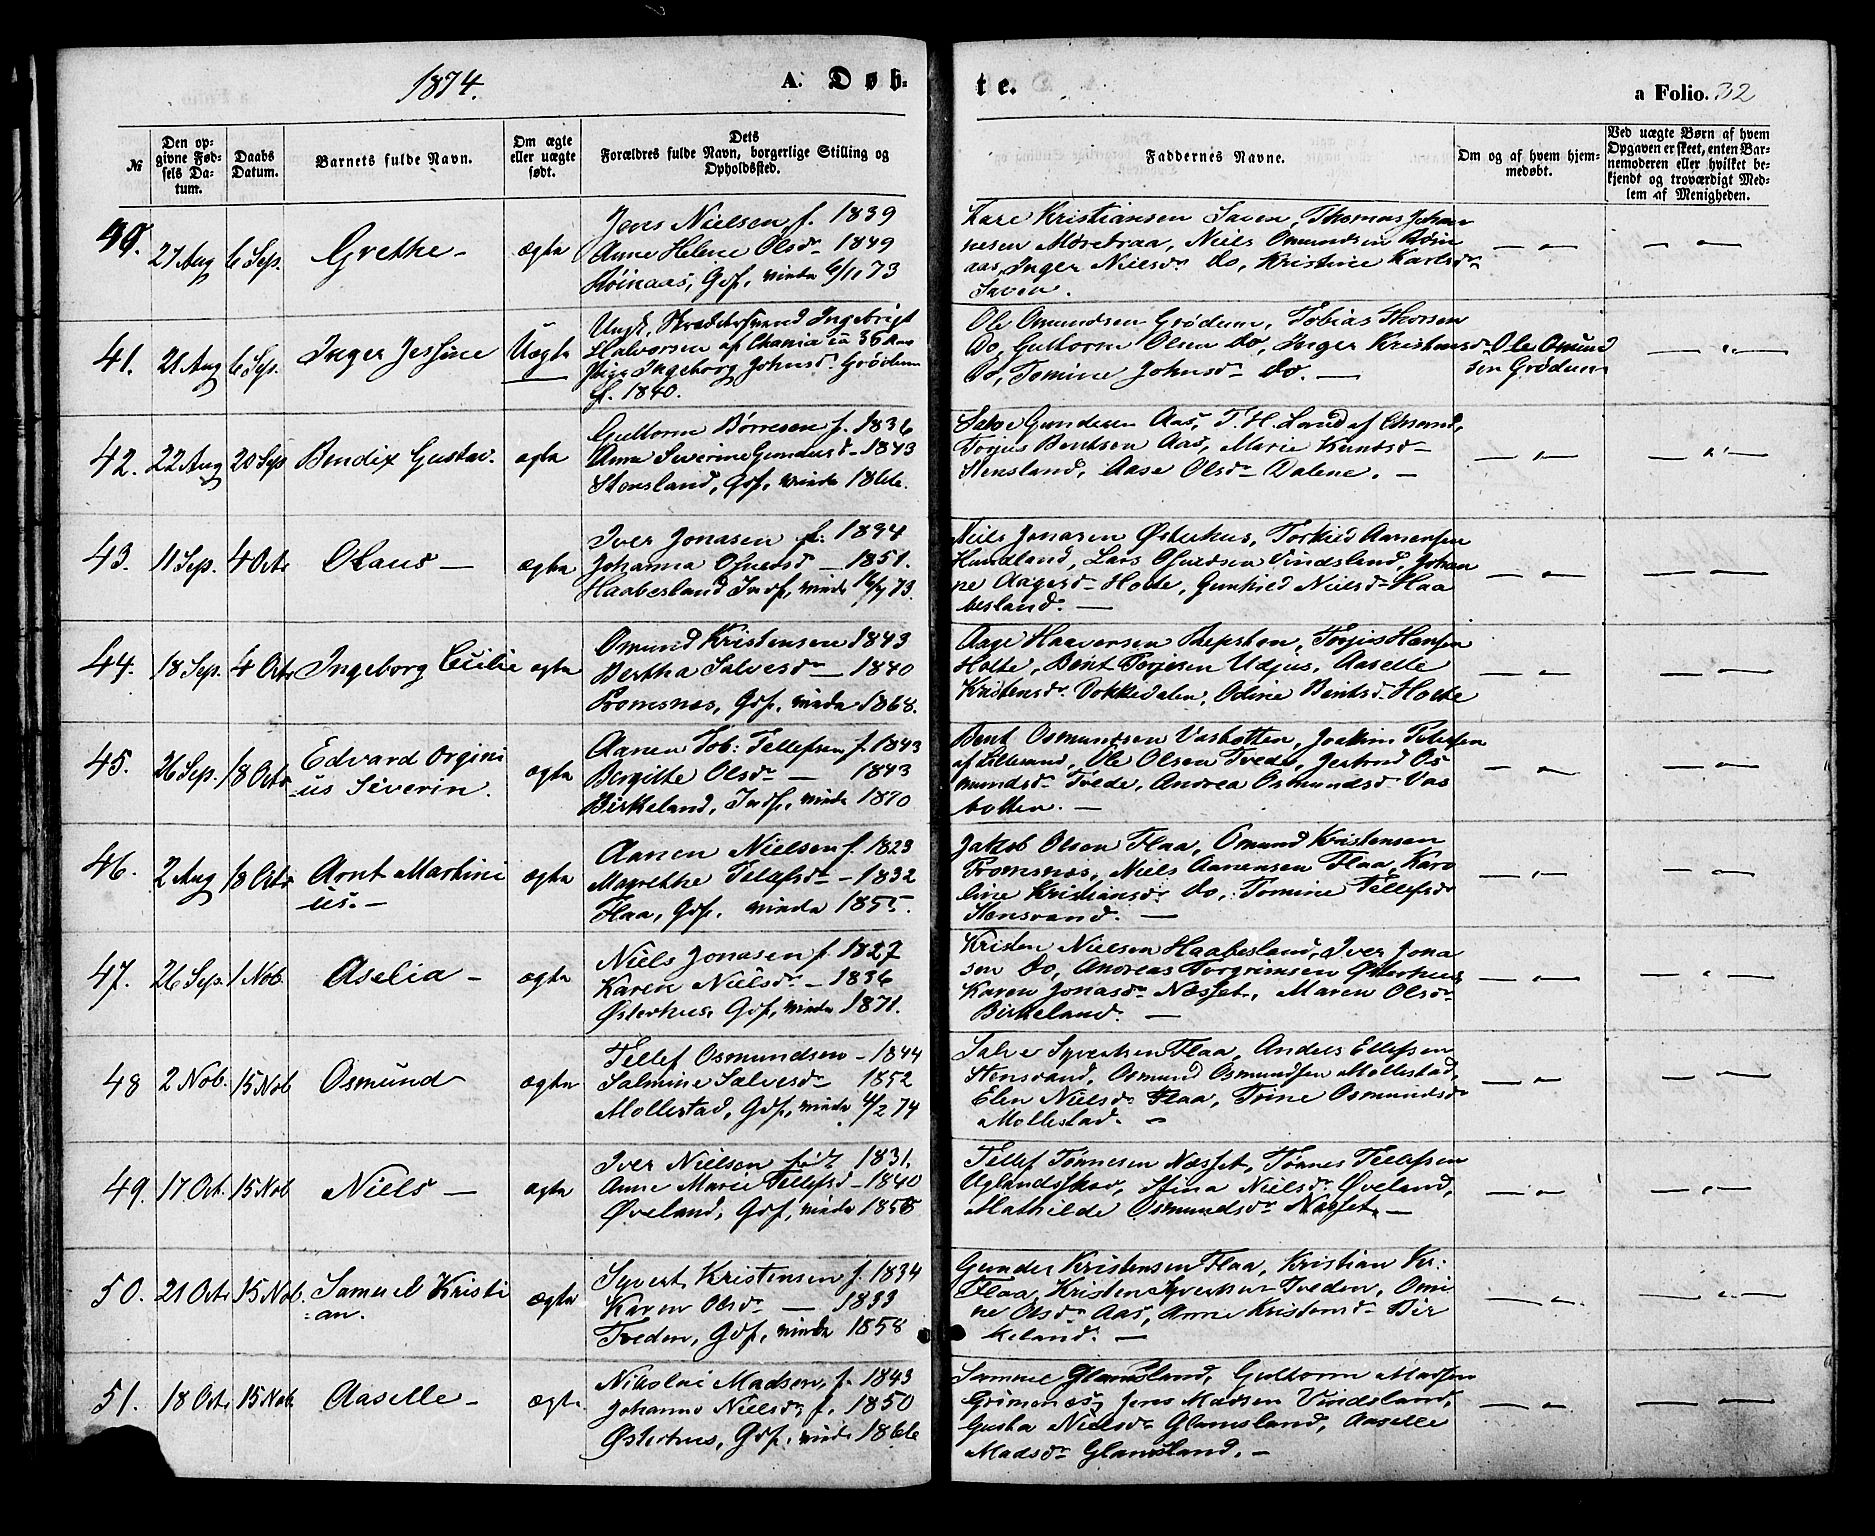 1874.
A. Døb-
te.
a Folio. 32
№
Den op-
givne Fød-
sels Da-
tum.
Daabs
Datum.
Barnets fulde Navn.
Om ægte
eller uægte
født.
Dets
Forældres fulde Navn, borgerlige Stilling og
Opholdssted.
Faddernes Navne.
Om og af hvem hjem-
medøbt.
Ved uægte Børn af hvem
Opgaven er skeet, enten Bar-
nemoderen eller hvilket be-
kjendt og troværdigt Med-
lem af Menigheden.
27 Aug 6 Sep. Grethe - ægte
Jens Nielsen f. 1839
Anne Helene Olsdr 1849
Støinaas, Gdf, viede 6/11 73
Kristiansen Saven, Thomas Johan
nesen Møretraa, Niels Omundsen Støin
aas, Inger Nielsdr do, Kristine Karlsdr
Saven.
41. 21 Aug 6 Sep. Inger Jessine Uægte
Ungk. Ingebrigt
Halvorsen af Chania ca 35 Aar
Pige Ingeborg Johnsdr Grødum
f. 1840.
Ole Omundsen Grødum, Tobias Thorsen
Do, Guttorm Olsen do, Inger Kristensdr
Do, Tomine Johnsdr Do. —
Ole Omund
sen Grødum
42. 22 Aug 20 Sep Bendix Gustav. ægte
Guttorm Børresen f. 1836
Anne Severine Gundersd - 1843
Stensland, Gdf, viede 1866.
Salve Gundersen Aas, T. H. Lund af Chrsand,
Torjus Bentsen Aas, Marie Knudsdr
Stensland, Aase Olsdr Dalene. —
43. 11 Sep. 4 Octr Olaus — ægte
Iver Jonasen f. 1834
Johanna — 1851.
Haabesland Indf, viede 16/7 73.
Niels Jonasen Østerhus, Torkild Aanensen
Hundland, Lars Vindsland, Johan
ne Aagesdr Holte, Gunhild Nielsdr Haa
besland. —
44. 18 Sep. 4 Octr Ingeborg Cecilie ægte
Osmund Kristensen 1843
Bertha Salvesdr — 1840
Fromsnes, Gdf, viede 1868.
Aage Haaversen Repsten, Torjus Hansen
Holte, Bent Torjesen Udjus, Aaselle
Kristensdr Dokkedalen, Oline Bentsdr Holte
45. 26 Sep. 18 Octr Edvard Orgini
-us Severin. ægte
Aanen Tob: Tellefsen f. 1843
Birgitte Olsdr — 1843
Birkeland, Indf, viede 1870
Bent Osmundsen Vasbotten, Joakim Petersen
af Lillesand, Ole Olsen Tvede, Jertrud Os-
mundsdr Tvede, Andrea Osmundsdr Vas
botten. —
46. 2 Aug 18 Octr Arnt Martini
us. - ægte
Aanen Nielsen f. 1823
Magrethe Tellefsdr - 1832
Flaa, Gdf. viede 1855.
Jakob Olsen Flaa, Omund Kristensen
Fromsnes, Niels Aanensen Flaa, Karo
line Kristiansdr do, Tomine Tellefsdr
Stensvand. —
47. 26 Sep. 1 Nob. Aselia - ægte
Niels Jonasen f. 1827
Karen Nielsdr - 1836
Østerhus, Gdf, viede 1871.
Kristen Nielsen Haabesland, Iver Jona
sen Do, Andreas Torgrimsen Østerhus
Karen Jonasdr Næsset, Maren Olsdr
Birkeland. —
48 2 Nob. 15 Nob Osmund ægte
Tellef Osmundsen - 1844
Salmine Salvesdr 1852
Mollestad, Gdf, viede 4/2 74
Salve Syvertsen Flaa, Anders Ellefsen
Stensvand, Osmund Osmundsen Mollestad,
Elen Nielsdr Flaa, Trine Osmundsdr
Mollestad. —
49. 17 Oct. 15 Nob Niels — ægte
Iver Nielsen født 1831.
Anne Marie Tellefsd - 1840
Øveland, Gdf, viede 1858
Tellef Tønnesen Næsset, Tønnes Tellefsen
Uglandsskar, Stina Nielsdr Øveland,
Mathilde Osmundsdr Næsset. —
50. 21 Octr 15 Nob. Samuel Kristi
-an. ægte
Syvert Kristensen f. 1834
Karen Olsdr — 1833
Tveden, Gdf, viede 1858
Gunder Kristensen Flaa, Kristian Kr:
Flaa, Kristen Syvertsen Tveden, Omi
ne Olsdr Aas, Anne Kristensdr Bir
keland. —
51. 18 Octr 15 Nob Aaselle - ægte
Nikolai Madsen, f. 1843
Johanne Nielsdr f. 1850
Østerhus, Gdf, viede 1866
Samuel Glamsland, Guttorm Madsen
Grimenes, Jens Madsen Vindsland,
Gusta Nielsdr Glamsland, Aaselle
Madsdr Glamsland. -